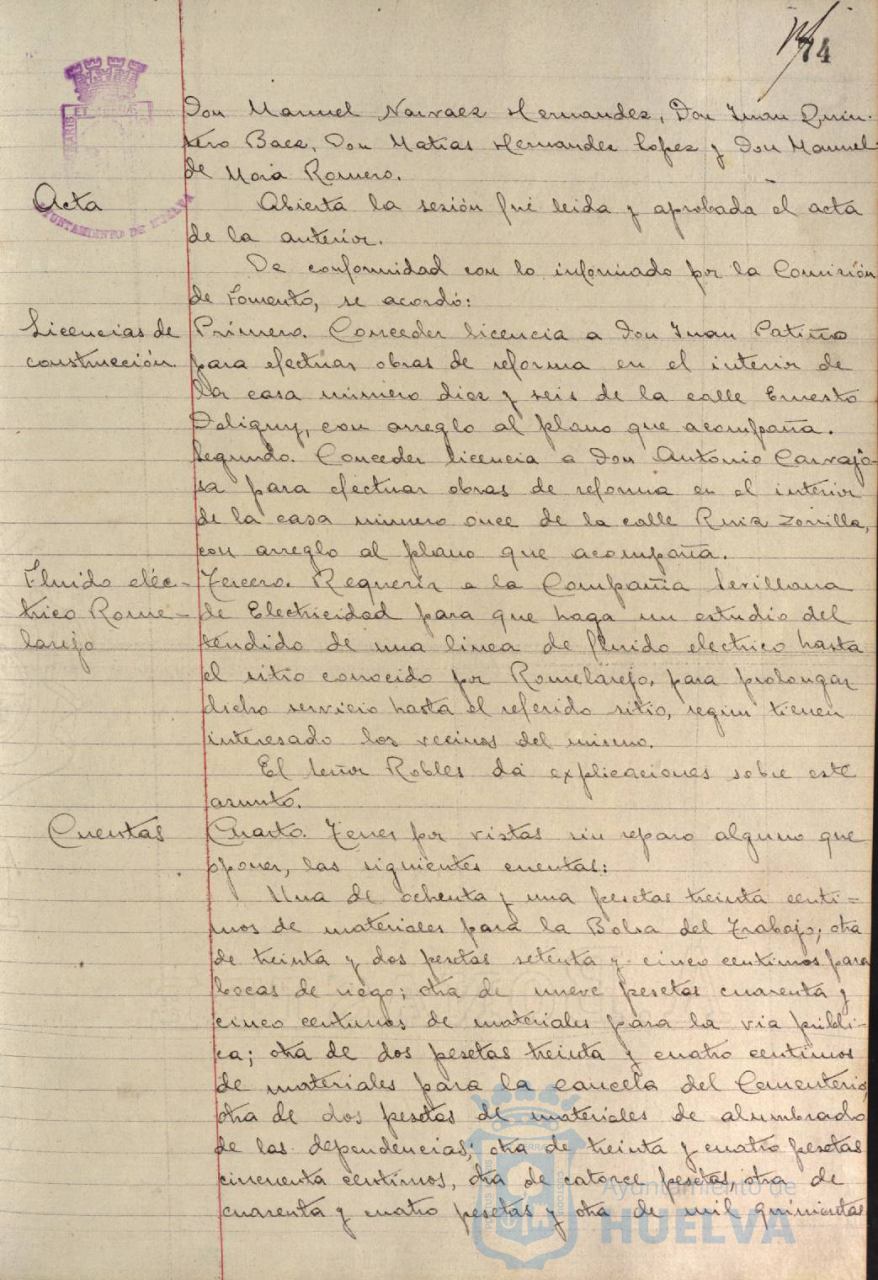 74
Don Manuel Narvaez Hernandez, Don Juan Quin-
tero Baez, Don Matias Hernandez Lopez y Don Manuel
de Mora Romero.
Acta
Abierta la sesión fué leida y aprobada el acta
de la anterior.
De conformidad con lo informado por la Comisión
de Fomento, se acordó:
Licencias de
construcción.
Primero. Conceder licencia a Don Juan Patiño
para efectuar obras de reforma en el interior de
la casa número diez y seis de la calle Ernesto
Deligny, con arreglo al plano que acompaña.
Segundo. Conceder licencia a Don Antonio Carvajo-
sa para efectuar obras de reforma en el interior
de la casa número once de la calle Ruiz Zorrilla,
con arreglo al plano que acompaña.
Fluido eléc-
trico Rome-
larejo
Tercero. Requerir a la Compañia Sevillana
de Electricidad para que haga un estudio del
tendido de una linea de fluido electrico hasta
el sitio conocido por Romelarejo, para prolongar
dicho servicio hasta el referido sitio, segun tienen
interesado los vecinos del mismo.
El señor Robles dá explicaciones sobre este
asunto.
Cuentas
Cuarto. Tener por vistas sin reparo alguno que
oponer, las siguientes cuentas:
Una de ochenta y una pesetas treinta centi-
mos de materiales para la Bolsa del Trabajo; otra
de treinta y dos pesetas setenta y cinco centimos para
bocas de riego; otra de nueve pesetas cuarenta y
cinco centimos de materiales para la via públi-
ca; otra de dos pesetas treinta y cuatro centimos
de materiales para la cancela del Cementerio,
otra de dos pesetas de materiales de alumbrado
de las dependencias; otra de treinta y cuatro pesetas
cincuenta centimos, otra de catorce pesetas, otra de
cuarenta y cuatro pesetas y otra de mil quinientas
AYUNTAMIENTO DE HUELVA
Ayuntamiento de
HUELVA